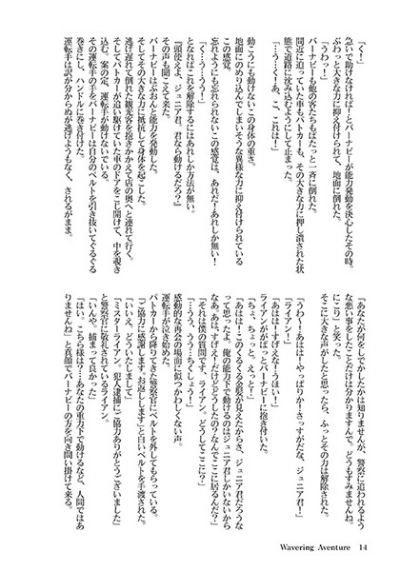 「く！」
急いで助けなければ！とバーナビーが能力発動を決心したその時、
ぶわっと大きな力に抑え付けられて、地面に倒れた。
「うわっ！」
バーナビーも他の客たちもばたっと一斉に倒れた。
間近に迫っていた車もパトカーも、その大きな力に押し潰された状
態で道路に沈み込むようにして止まった。
「…う…く！あ、こ、これは！」
動こうにも動けないこの身体の重さ。
地面にのめり込んでしまいそうな異様な力に抑え付けられている
この感覚。
忘れようにも忘れられないこの感覚は、あれだ！あれしか無い！
「く…う…うう！」
となればこれを解除するにはあれしか方法が無い。
『頭使えよ、ジュニア君。君なら動けるだろ？』
その声も聞こえて来た。
バーナビーはぶわんと能力を発動した。
そしてその大きな力に抵抗して身体を起こした。
逃げ遅れて倒れた観光客を抱きかかえて店の奥へと連れて行く。
そしてパトカーが追い駆けていた車のドアをこじ開けて、中を覗き
込む。案の定、運転手が動けないでいる。
その運転手の手をバーナビーは自分のベルトを引き抜いてぐるぐる
巻きにし、ハンドルに巻き付けた。
運転手は訳が分からぬが逃げようもなく、されるがまま。
「あなたが何をしてでかしたかは知りませんが、警察に追われるよう
な悪い事をしたことだけは分かりますんで。どうもすみませんね」
にこり、と笑った。
そこに大きな声がしたと思ったら、ふっとその力は解除された。
「うわ〜！あはは！やっぱりか！さっすがだな、ジュニア君！」
「ライアン！」
「あはは！すげえな！うほい！」
ライアンががばっとバーナビーに抱き付いた。
「ちょ、ちょっと、えっと！」
「あはは！このくるくる金髪が見えたからさ、ジュニア君だろうな
って思ったよ。俺の能力下で動けるのはジュニア君しかいないから
なあ。あは、すげえ！だけどどうしたの？なんでここに居るんだ？」
「それは僕の質問です、ライアン。どうしてここに？」
「…うう、うう…ちくしょう！」
感動的な再会の場面に似つかわしくない声。
運転手が泣き始めた。
パトカーから降りてきた警察官にベルトを外してもらっている。
「ご協力に感謝します。お返しします」と白いベルトを手渡された。
「いいえ、どういたしまして」
「ミスターライアン。犯人逮捕にご協力ありがとうございました」
と警察官に敬礼されているライアン。
「いんや、捕まって良かった」
「はい。こちら様は？…あなたの重力下で動けるなど、人間ではあ
りませんね」と真顔でバーナビーの方を向き問い掛けて来る。
Wavering Aventure 14